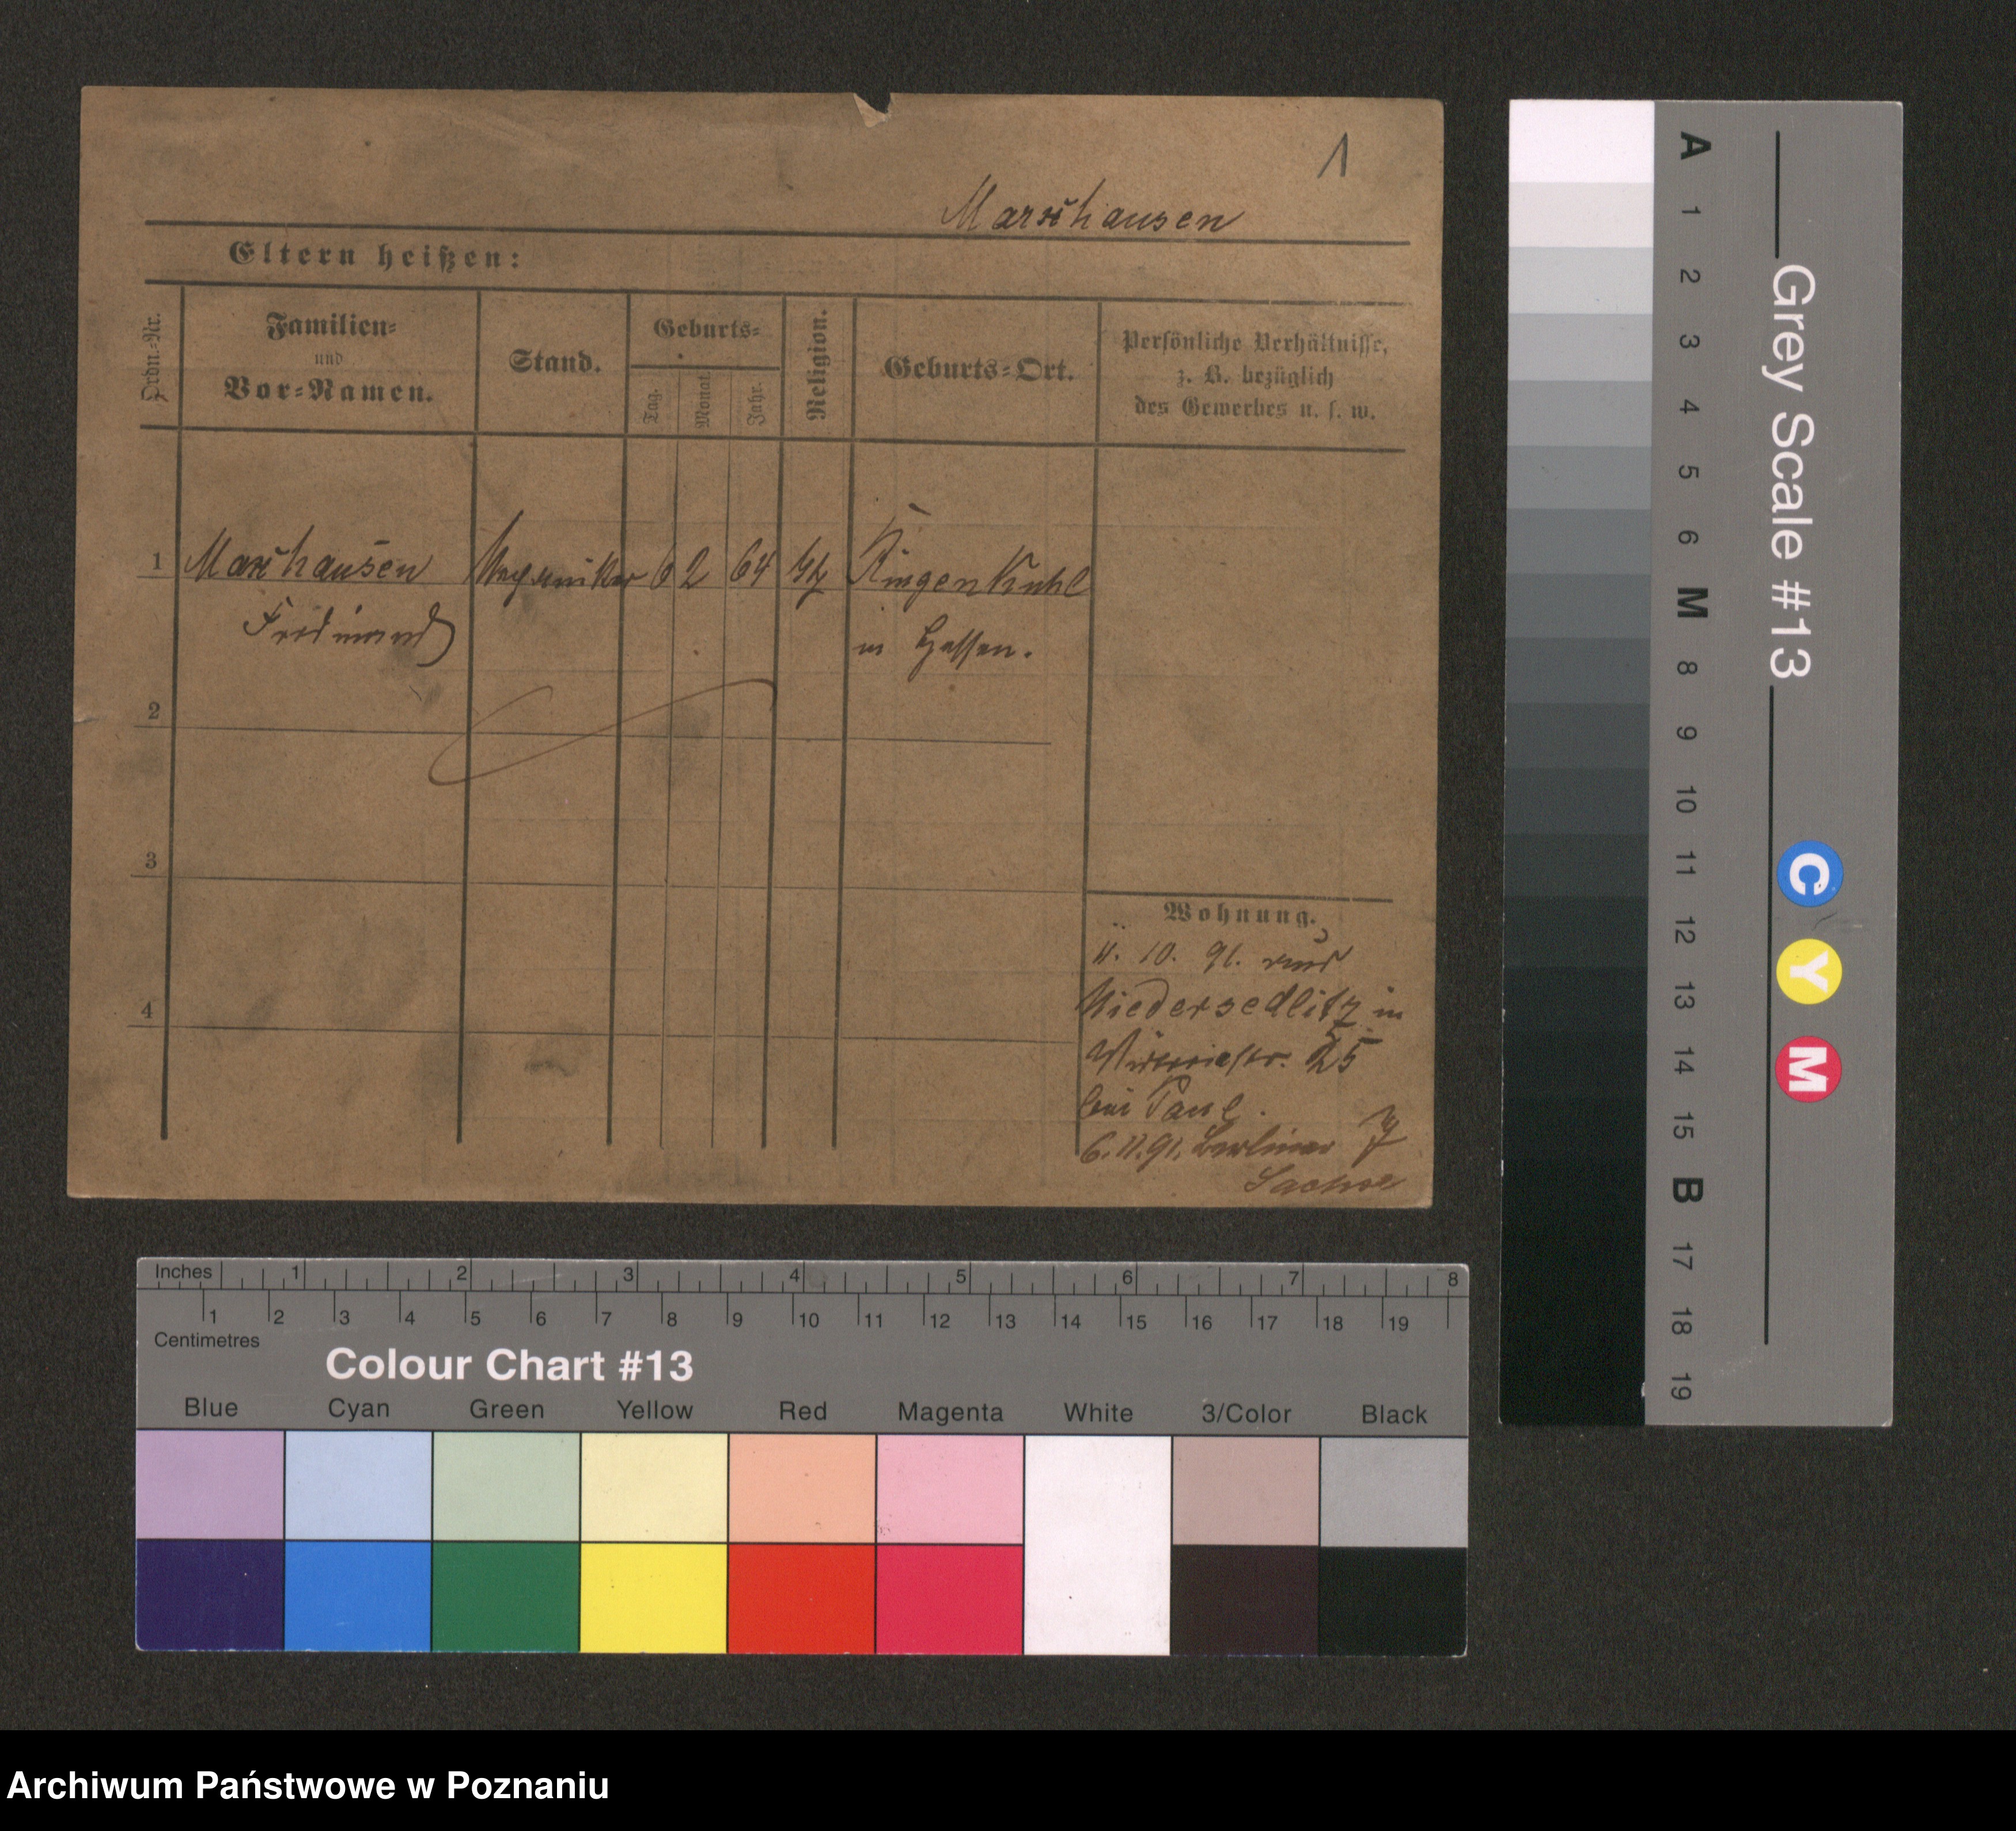 1
Marxhausen
Eltern heißen:
Ordn.-Nr.
Familien-
und
Vor-Namen.
Stand.
Geburts-
Tag.
Monat.
Jahr.
Religion.
Geburts-Ort.
Persönliche Verhältnisse,
z. B. bezüglich
des Gewerbes u. s. w.
1
Marxhausen
Ferdinand
6
2
64
Ringenkuhl
in Hessen.
2
3
4
Wohnung.
10. 91.
Niedersedlitz in
25
bei Paul.
6. 11. 91. Berliner
Grey Scale #13
A
1
2
3
4
5
6
M
8
9
10
11
12
13
14
15
B
17
18
19
C
Y
M
Inches
1 2 3 4 5 6 7 8
1 2 3 4 5 6 7 8 9 10 11 12 13 14 15 16 17 18 19
Centimetres
Colour Chart #13
Blue Cyan Green Yellow Red Magenta White 3/Color Black
Archiwum Państwowe w Poznaniu